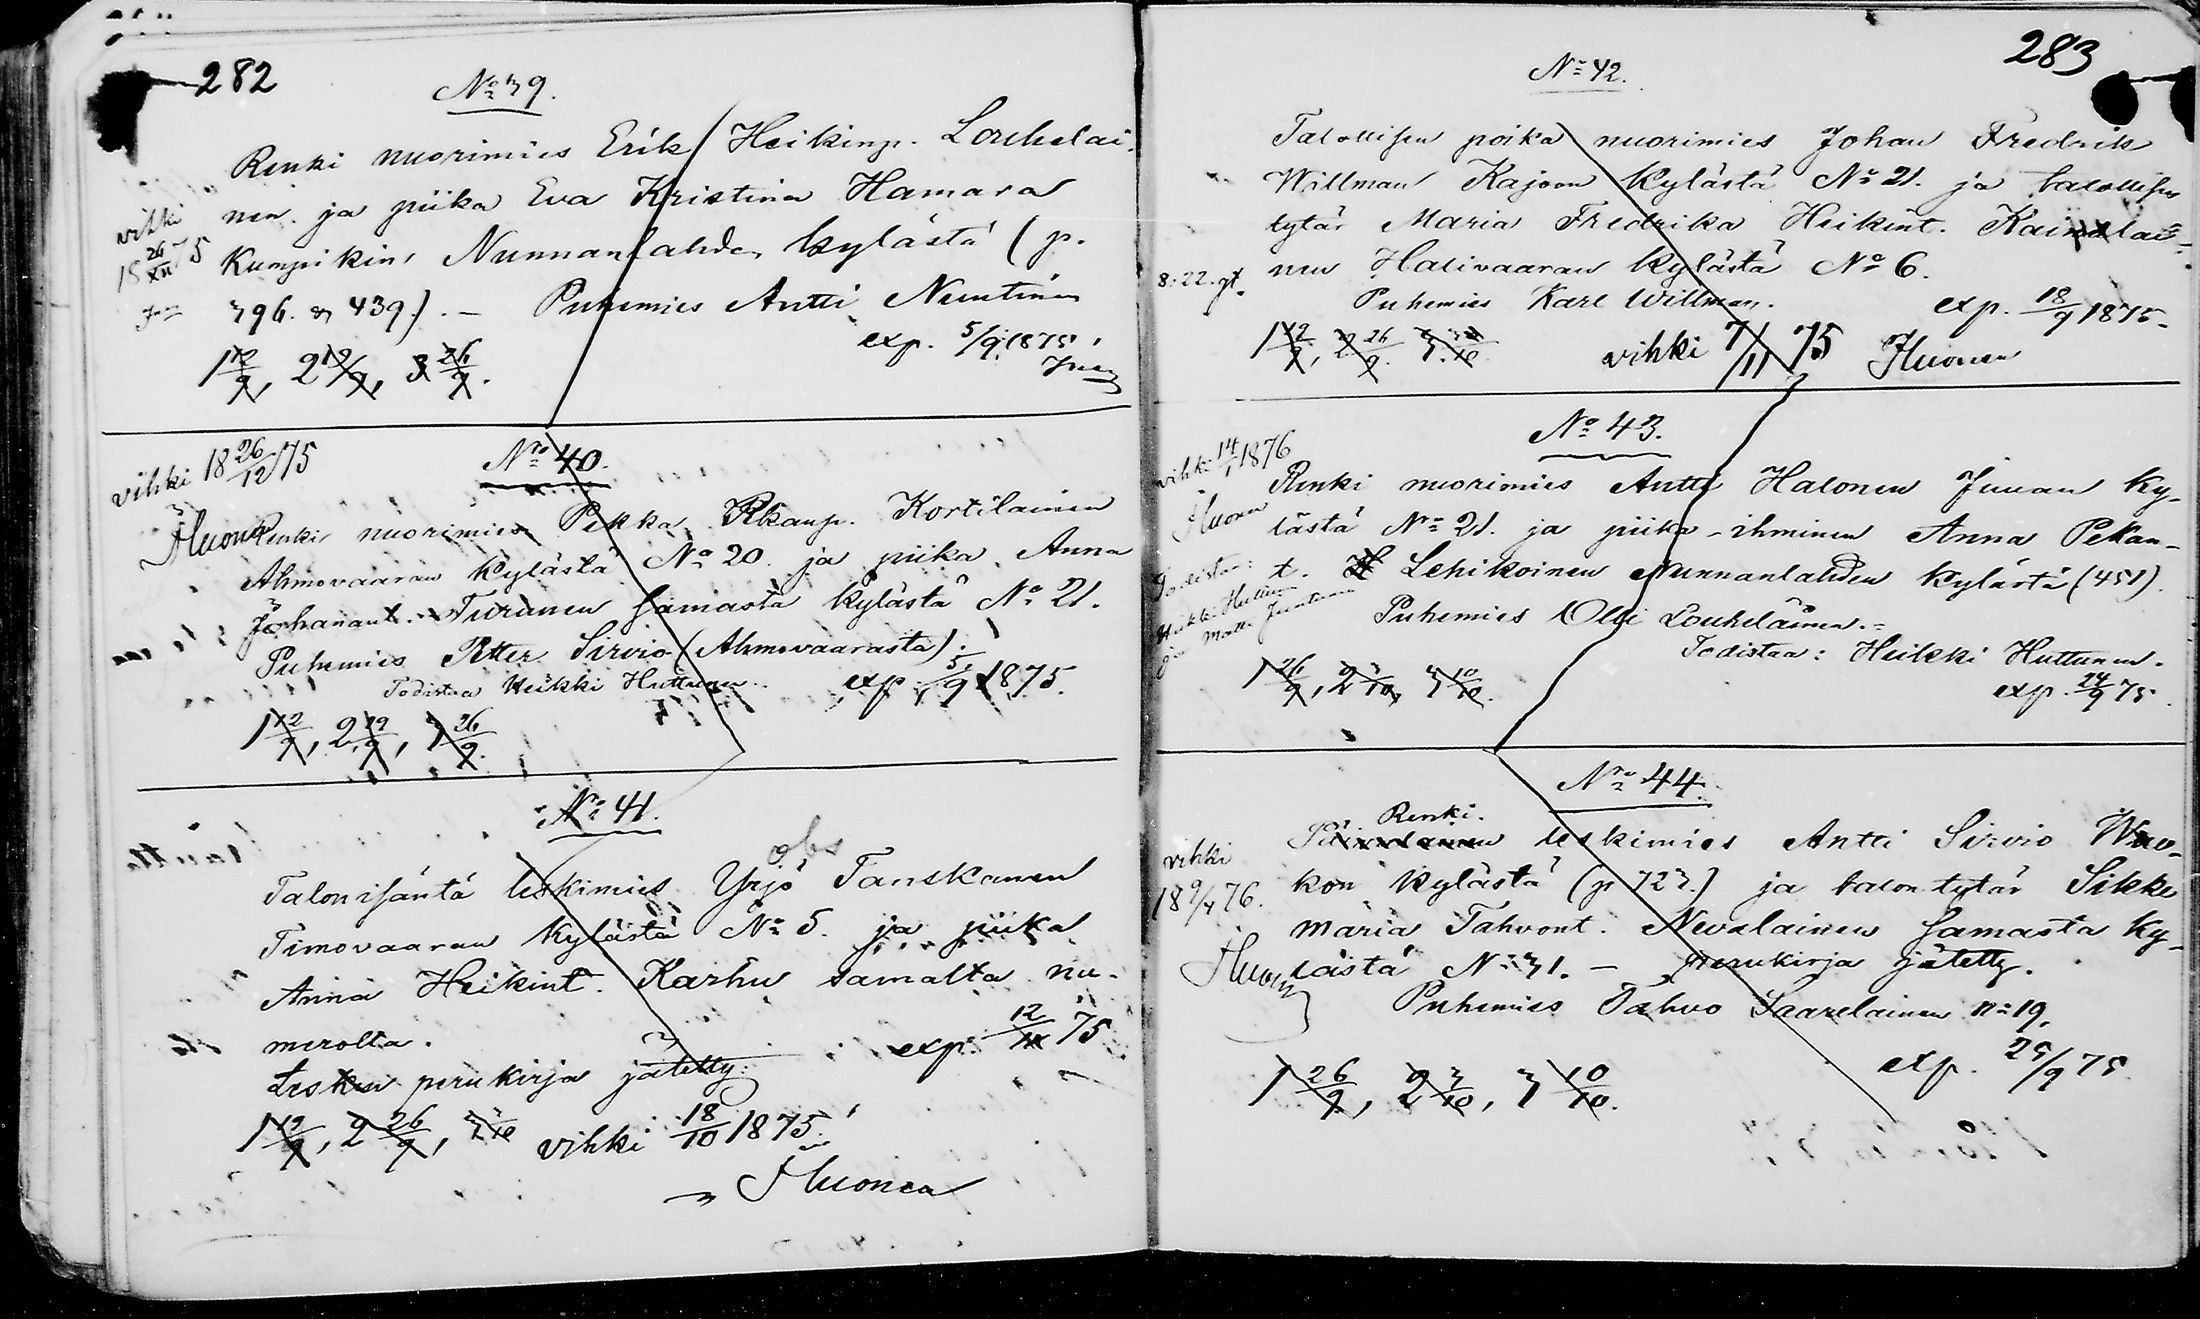 282
No 39.
Renki nuorimies Erik Heikinp. Louhelai-
nen ja piika Eva Kristina Hamara
Kumpikin Nunnanlahden kylästä (p.
396. & 439). — Puhemies Antti Nuutinen
exp. 5/9 1875.
1 12/9, 2 19/9, 3 26/9.
vihki
18 26/XII 75
vihki 18 26/12 75
No 40.
Renki nuorimies Pekka Pkanp. Kortilainen
Ahmovaaran kylästä No 20 ja piika Anna
Johanant. Turunen samasta kylästä No 21.
Puhemies Petter Sirviö (Ahmovaarasta).
Todistaa Heikki Huttunen. exp. 5/9 1875.
1 12/9, 2 19/9, 3 26/9.
No 41.
obs
Talonisäntä leskimies Yrjö Tanskanen
Timovaaran kylästä No 5. ja piika
Anna Heikint. Karhu samalta nu-
merolta. exp. 12/10 75
Lesken perukirja jätetty.
1 19/9, 2 26/9, 3 3/10 vihki 18/10 1875.
JHuonea
283
No 42.
Talollisen poika nuorimies Johan Fredrik
Willman Kajoon kylästä No 21. ja talollisen
tytär Maria Fredrika Heikint. Kainulai-
nen Halivaaran kylästä No 6.
Puhemies Karl Willman. exp. 18/9 1875.
1 19/9, 2 26/9, 3 3/10. vihki 7/11 75 JHuonea
No 43.
vihki 14/1 1876
Renki nuorimies Antti Halonen Juuan ky-
lästä No 21. ja piika-ihminen Anna Pekan-
t. Lehikoinen Nunnanlahden kylästä (451).
Puhemies Olli Louhelainen.
Todistaa: Heikki Huttunen.
exp. 24/9 75.
1 26/9, 2 3/10, 3 10/10.
Todistaa:
Heikki Huttunen
ja Matti Juntunen
No 44.
Renki.
leskimies Antti Sirviö Wuo-
kon kylästä (p 723.) ja talon tytär Sikku
maria Tahvont. Nevalainen samasta ky-
lästä No 31. — perukirja jätetty.
Puhemies Tahvo Saarelainen no 19.
exp. 25/9 75.
1 26/9, 2 3/10, 3 10/10.
vihki
18 9/4 76.